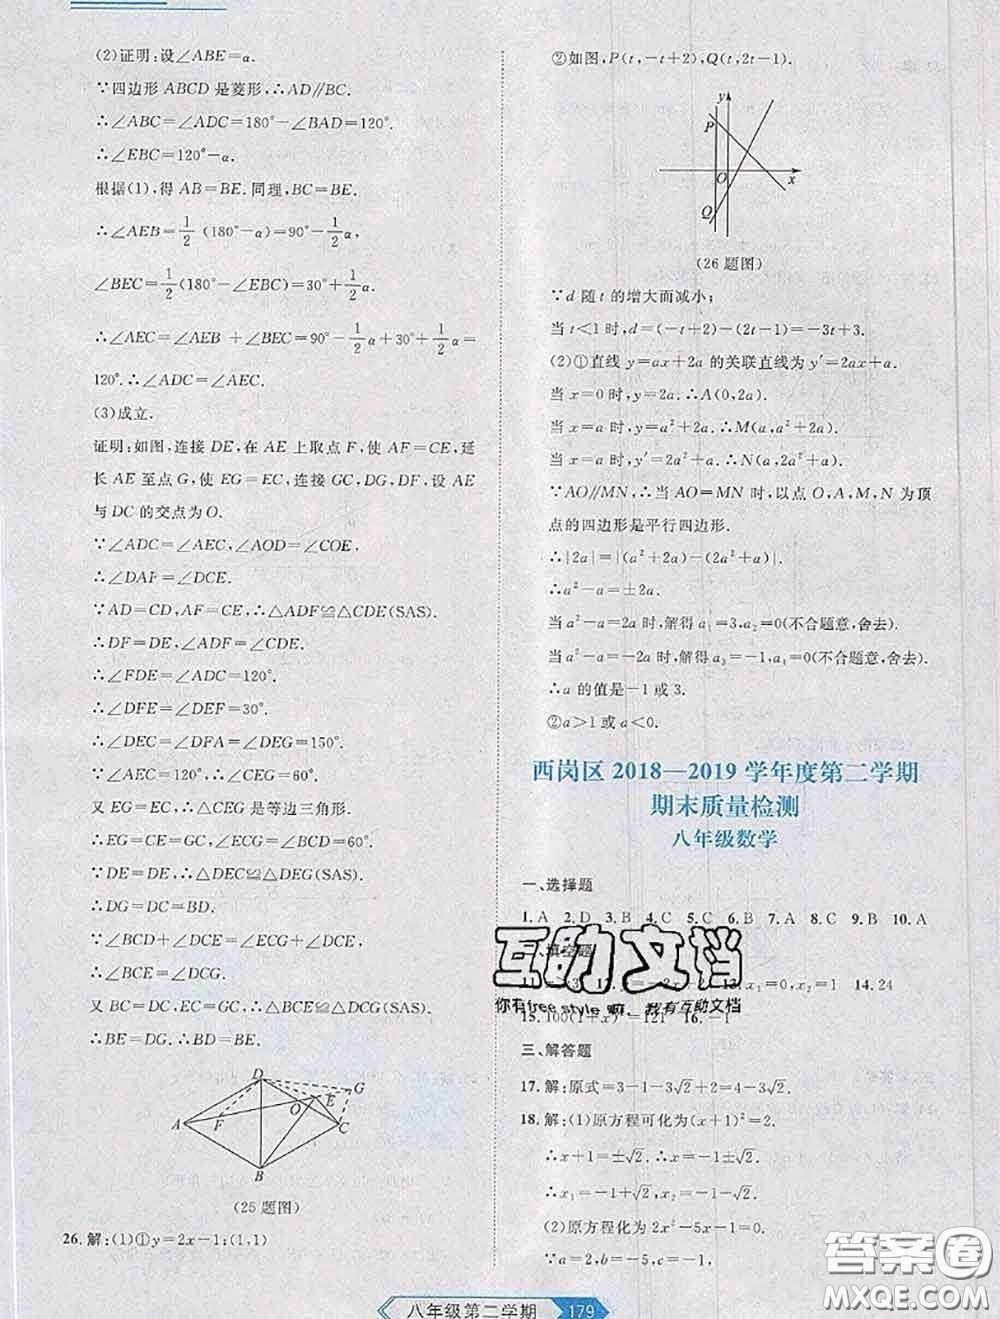 (2)证明:设∠ABE=α.
∵四边形 ABCD 是菱形,∴AD∥BC.
∴∠ABC=∠ADC=180°-∠BAD=120°.
∴∠EBC=120°-α.
根据(1),得 AB=BE.同理,BC=BE.
∴∠AEB=1/2(180°-α)=90°-1/2α,
∠BEC=1/2(180°-∠EBC)=30°+1/2α.
∴∠AEC=∠AEB+∠BEC=90°-1/2α+30°+1/2α=
120°.∴∠ADC=∠AEC.
(3)成立.
证明:如图,连接 DE,在 AE 上取点 F,使 AF=CE,延
长 AE 至点 G,使 EG=EC,连接 GC,DG,DF,设 AE
与 DC 的交点为 O.
∵∠ADC=∠AEC,∠AOD=∠COE,
∴∠DAF=∠DCE.
∵AD=CD,AF=CE,∴△ADF≌△CDE(SAS).
∴DF=DE,∠ADF=∠CDE.
∴∠FDE=∠ADC=120°.
∴∠DFE=∠DEF=30°.
∴∠DEC=∠DFA=∠DEG=150°.
∵∠AEC=120°,∴∠CEG=60°.
又 EG=EC,∴△CEG 是等边三角形.
∴EG=CE=GC,∠ECG=∠GEC=60°.
∵DE=DE,∴△DEC≌△DEG(SAS).
∴DG=DC=BD.
∵∠BCD+∠DCE=∠ECG+∠DCE,
∴∠BCE=∠DCG.
又 BC=DC,EC=GC,∴△BCE≌△DCG(SAS).
∴BE=DG.∴BE=BD.
D
G
E
O
A
F
C
B
(25题图)
26.解:(1)①y=2x-1;(1,1)
②如图,P(t,-t+2),Q(t,2t-1).
y
P
O
x
Q
(26题图)
∵d 随 t 的增大而减小;
当 t<1 时,d=(-t+2)-(2t-1)=-3t+3.
(2)①直线 y=ax+2a 的关联直线为 y'=2ax+a.
当 x=0 时,y=2a.∴A(0,2a).
当 x=a 时,y=a²+2a.∴M(a,a²+2a).
当 x=a 时,y=2a²+a.∴N(a,2a²+a).
∵AO∥MN,∴当 AO=MN 时,以点 O,A,M,N 为顶
点的四边形是平行四边形.
∴|2a|=|(a²+2a)-(2a²+a)|.
∴a²-a=±2a.
当 a²-a=2a 时,解得 a₁=3,a₂=0(不合题意,舍去).
当 a²-a=-2a 时,解得 a₃=-1,a₄=0(不合题意,舍去).
∴a 的值是-1 或 3.
②a>1 或 a<0.
西岗区 2018—2019 学年度第二学期
期末质量检测
八年级数学
一、选择题
1.A 2.D 3.B 4.C 5.C 6.B 7.A 8.C 9.B 10.A
填空题
x₁=0,x₂=1 14.24
15.100(1+x)²=121 16.-1
三、解答题
17.解:原式=3-1-3√2+√2=2-2√2.
18.解:(1)原方程可化为(x+1)²=2.
∴x+1=±√2.∴x=-1±√2.
∴x₁=-1-√2,x₂=-1+√2.
(2)原方程化为 2x²-5x-1=0.
∵a=2,b=-5,c=-1,
互助文档
你有free style 嘛,我有互助文档
八年级第二学期 179
答案圈
MXQE.COM